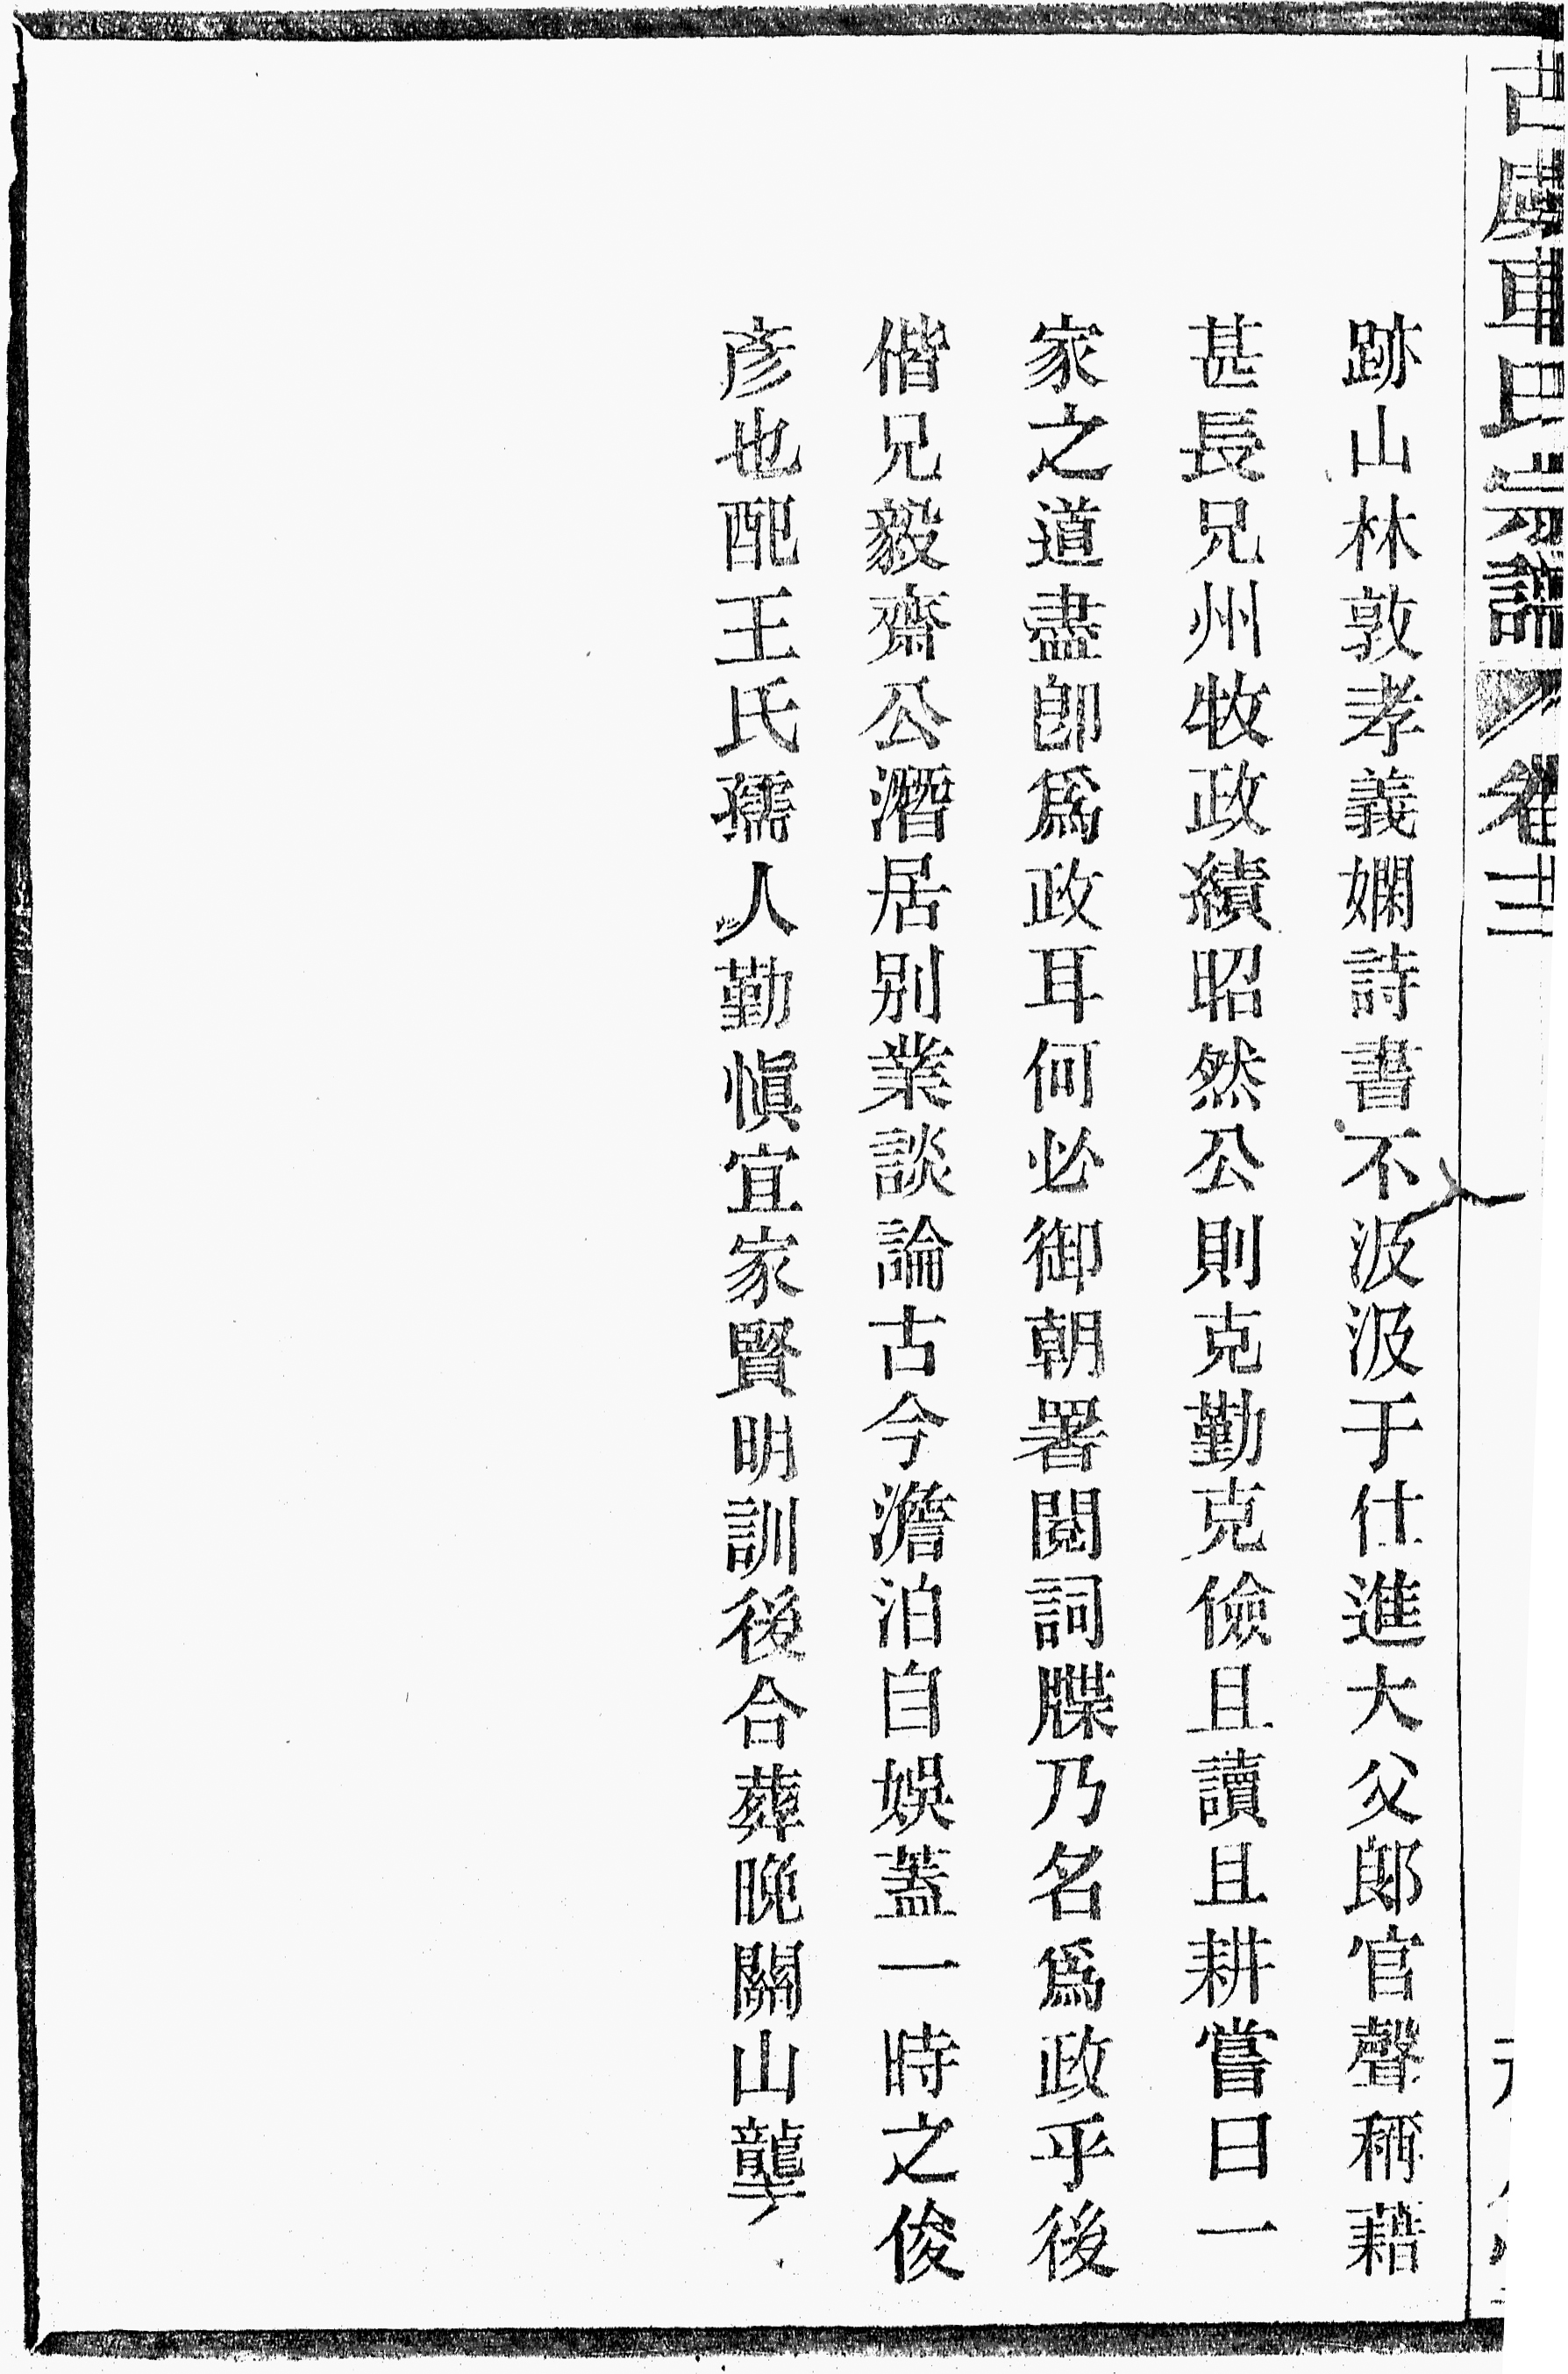 古虞車氏宗譜 卷十三
跡山林敦孝義嫻詩書不汲汲于仕進大父郎官聲稱藉
甚長兄州牧政績昭然公則克勤克儉且讀且耕嘗曰一
家之道盡卽爲政耳何必御朝署閱詞牒乃名爲政乎後
偕兄毅齋公潛居別業談論古今澹泊自娛蓋一時之俊
彦也配王氏孺人勤愼宜家賢明訓後合葬晚關山龔